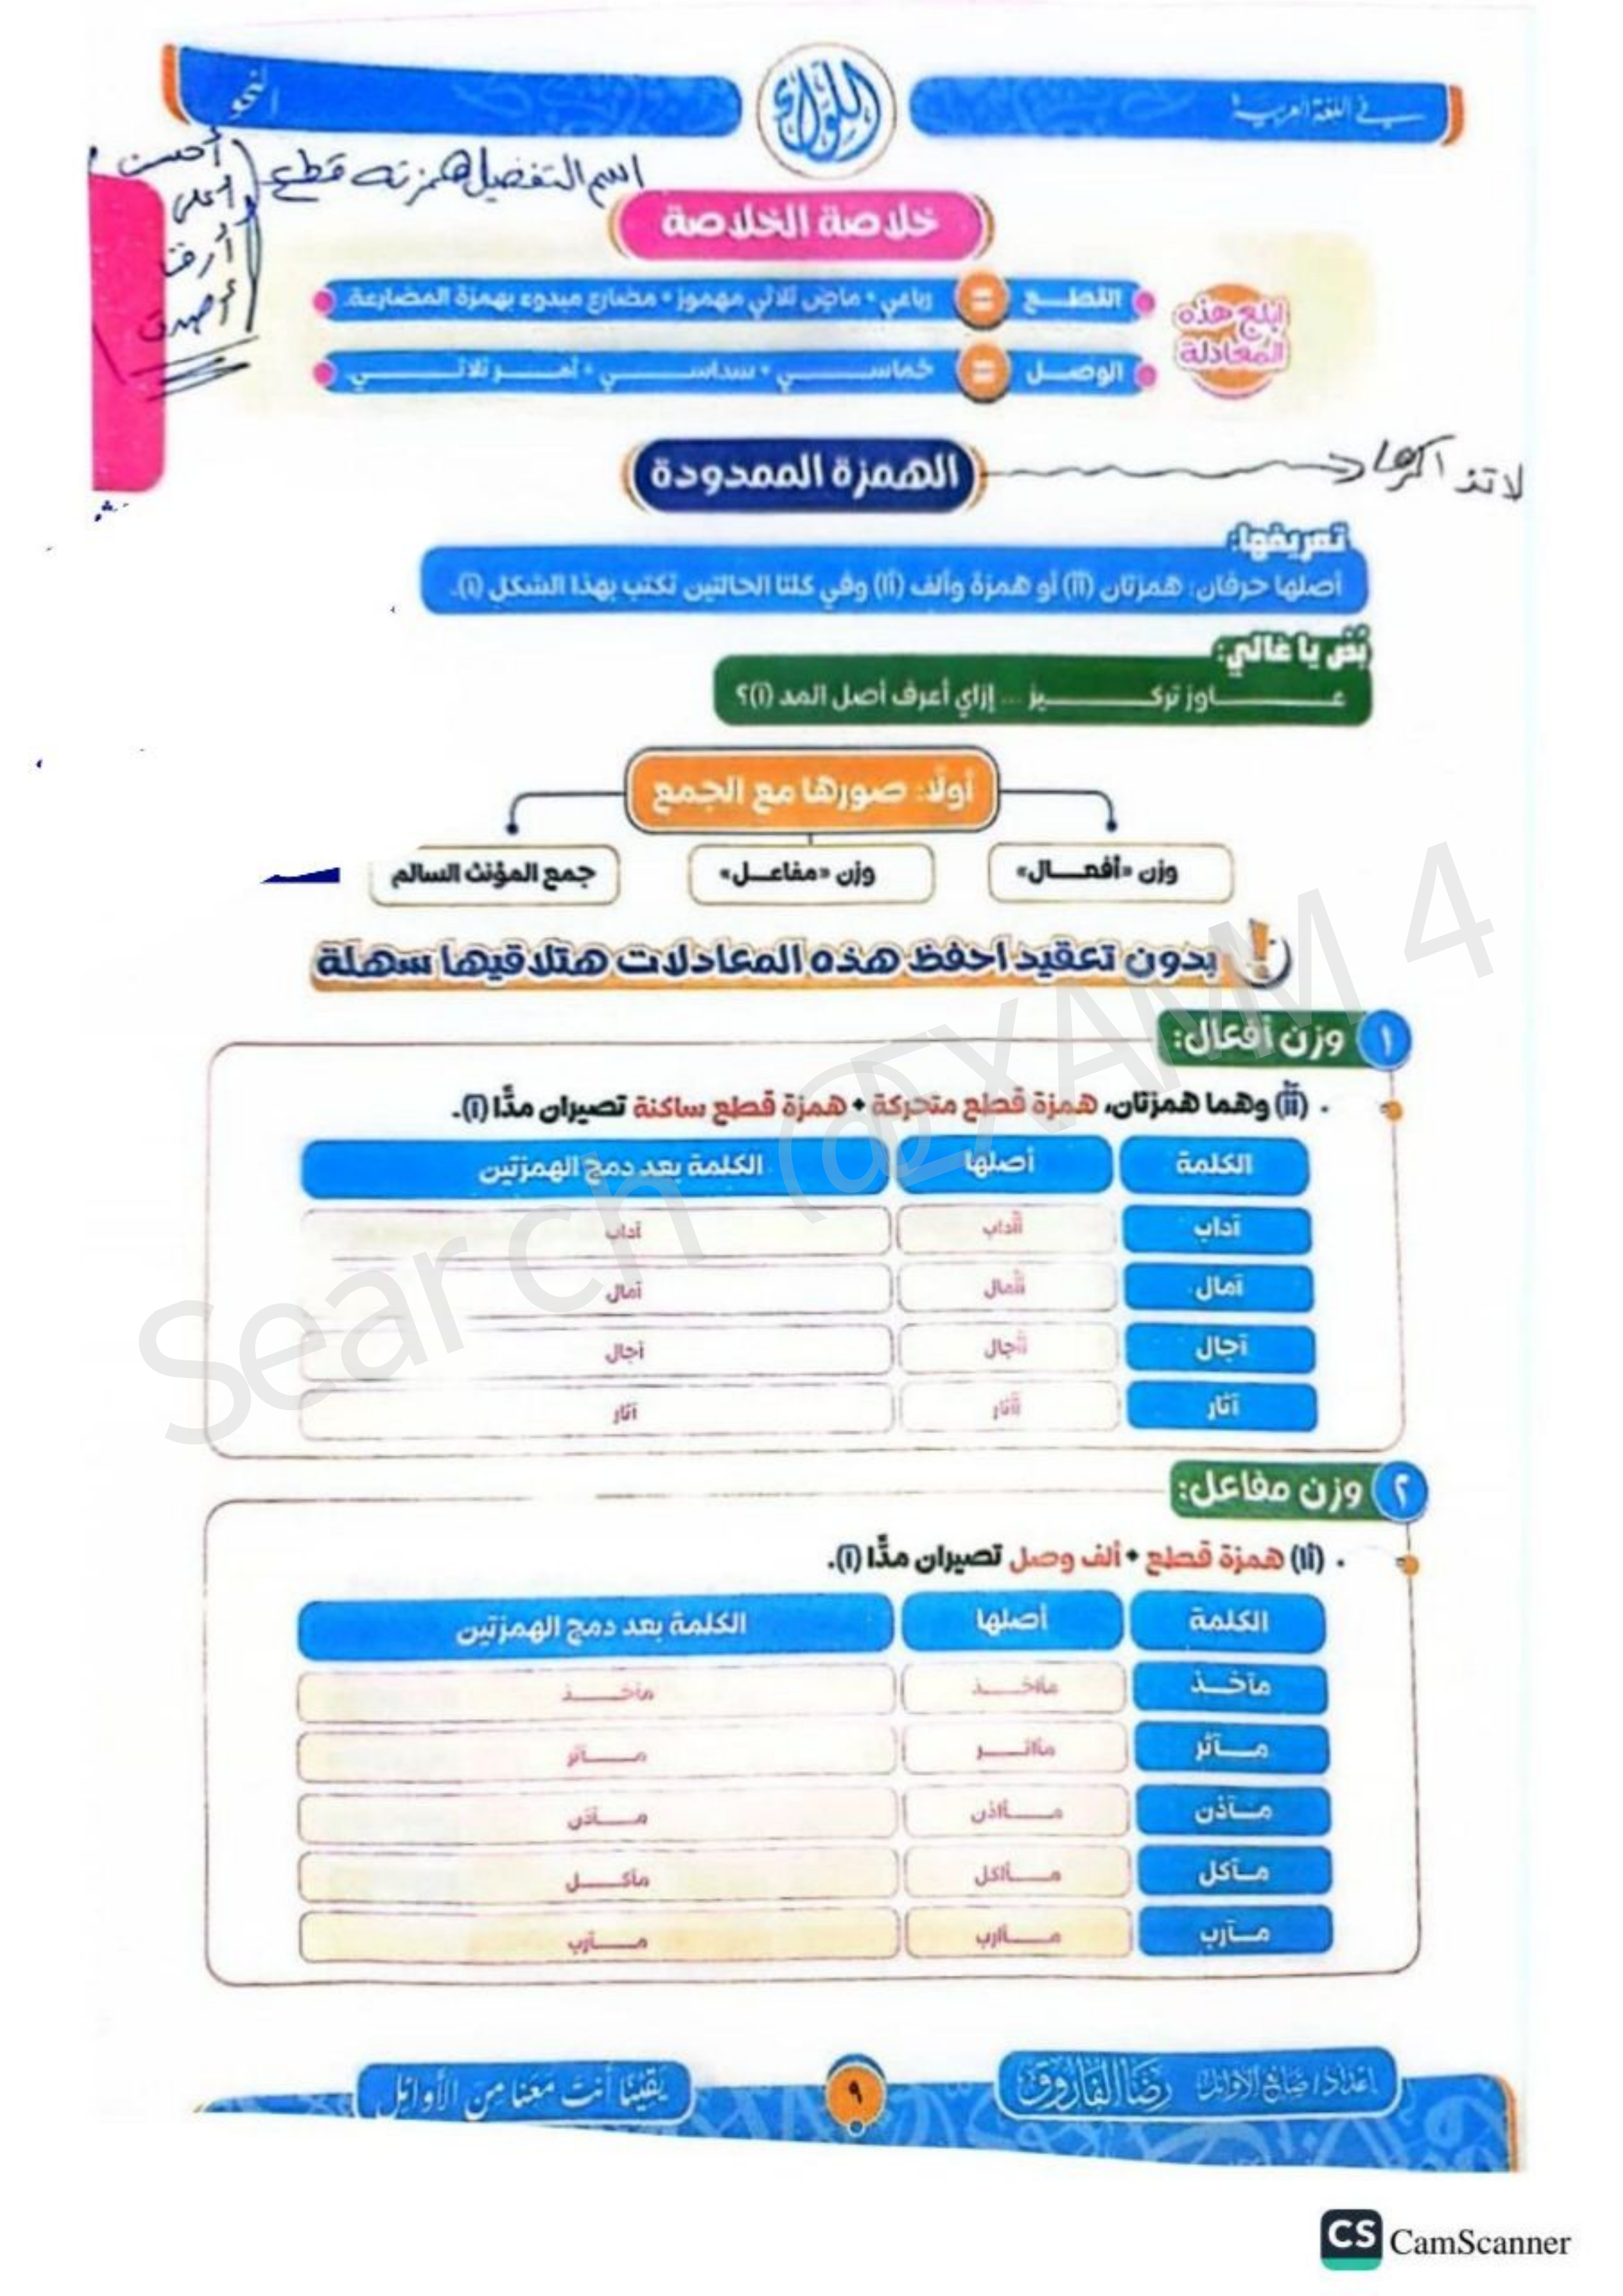 في اللغة العربية
اللواء
اسم التفضيل همزته قطع
أحسن
أصدق
خلاصة الخلاصة
ابلع هذه
المعادلة
القطـــع = رباعي + ماضٍ ثلاثي مهموز + مضارع مبدوء بهمزة المضارعة.
الوصـــل = خماســـــي + سداســـــي + أمـــر ثلاثـــــي.
الهمزة الممدودة
لا تذاكرها
تعريفها:
أصلها حرفان: همزتان (أأ) أو همزة وألف (أا) وفي كلتا الحالتين تكتب بهذا الشكل (آ).
بُص يا غالي:
عــــــاوز تركـــــــيز ... إزاي أعرف أصل المد (آ)؟
أولًا: صورها مع الجمع
وزن «أفعـــال»
وزن «مفاعـــل»
جمع المؤنث السالم
بدون تعقيد احفظ هذه المعادلات هتلاقيها سهلة
١ وزن أفعال:
• (أأ) وهما همزتان، همزة قطع متحركة + همزة قطع ساكنة تصيران مدًّا (آ).
الكلمة أصلها الكلمة بعد دمج الهمزتين
آداب أأداب آداب
آمال أأمال آمال
آجال أأجال آجال
آثار أأثار آثار
٢ وزن مفاعل:
• (أا) همزة قطع + ألف وصل تصيران مدًّا (آ).
الكلمة أصلها الكلمة بعد دمج الهمزتين
مآخـــذ مأاخـــذ مآخـــذ
مـــآثر مأاثـــر مـــآثر
مـــآذن مـــأاذن مـــآذن
مـــآكل مـــأاكل مآكـــل
مـــآرب مـــأارب مـــآرب
إعداد / صانع الأوائل رضا الفاروق
٩
يقينًا أنت معنا من الأوائل
Search @EXAMM 4
CS CamScanner